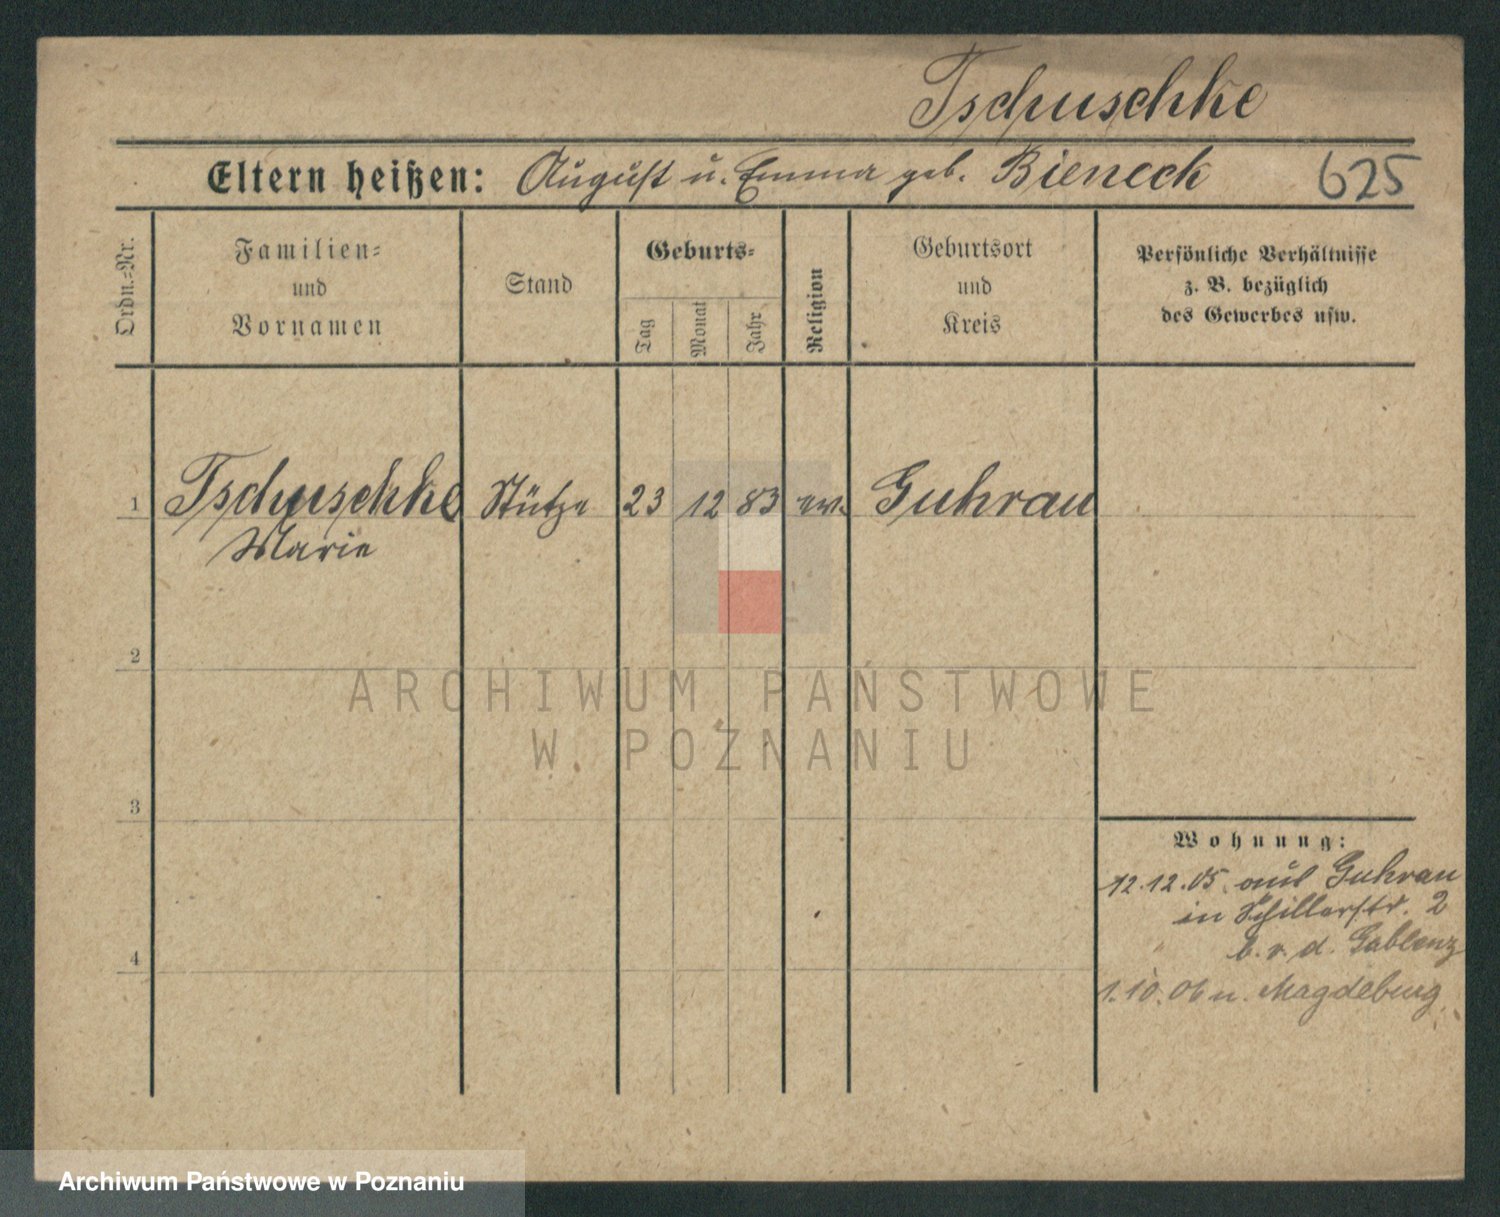 Tschuschke
Eltern heißen: August u. Emma geb. Bieneck 625
Ordn.=Nr.
Familien=
und
Vornamen
Stand
Geburts=
Tag
Monat
Jahr
Religion
Geburtsort
und
Kreis
Persönliche Verhältnisse
z. B. bezüglich
des Gewerbes usw.
1 Tschuschke Stütze 23 12 83 ev. Guhrau
Marie
2
ARCHIWUM PAŃSTWOWE
W POZNANIU
3
Wohnung:
12.12.05 aus Guhrau
in Schillerstr. 2
b. v. d. Gablenz
4
1.10.06 n. Magdeburg
Archiwum Państwowe w Poznaniu